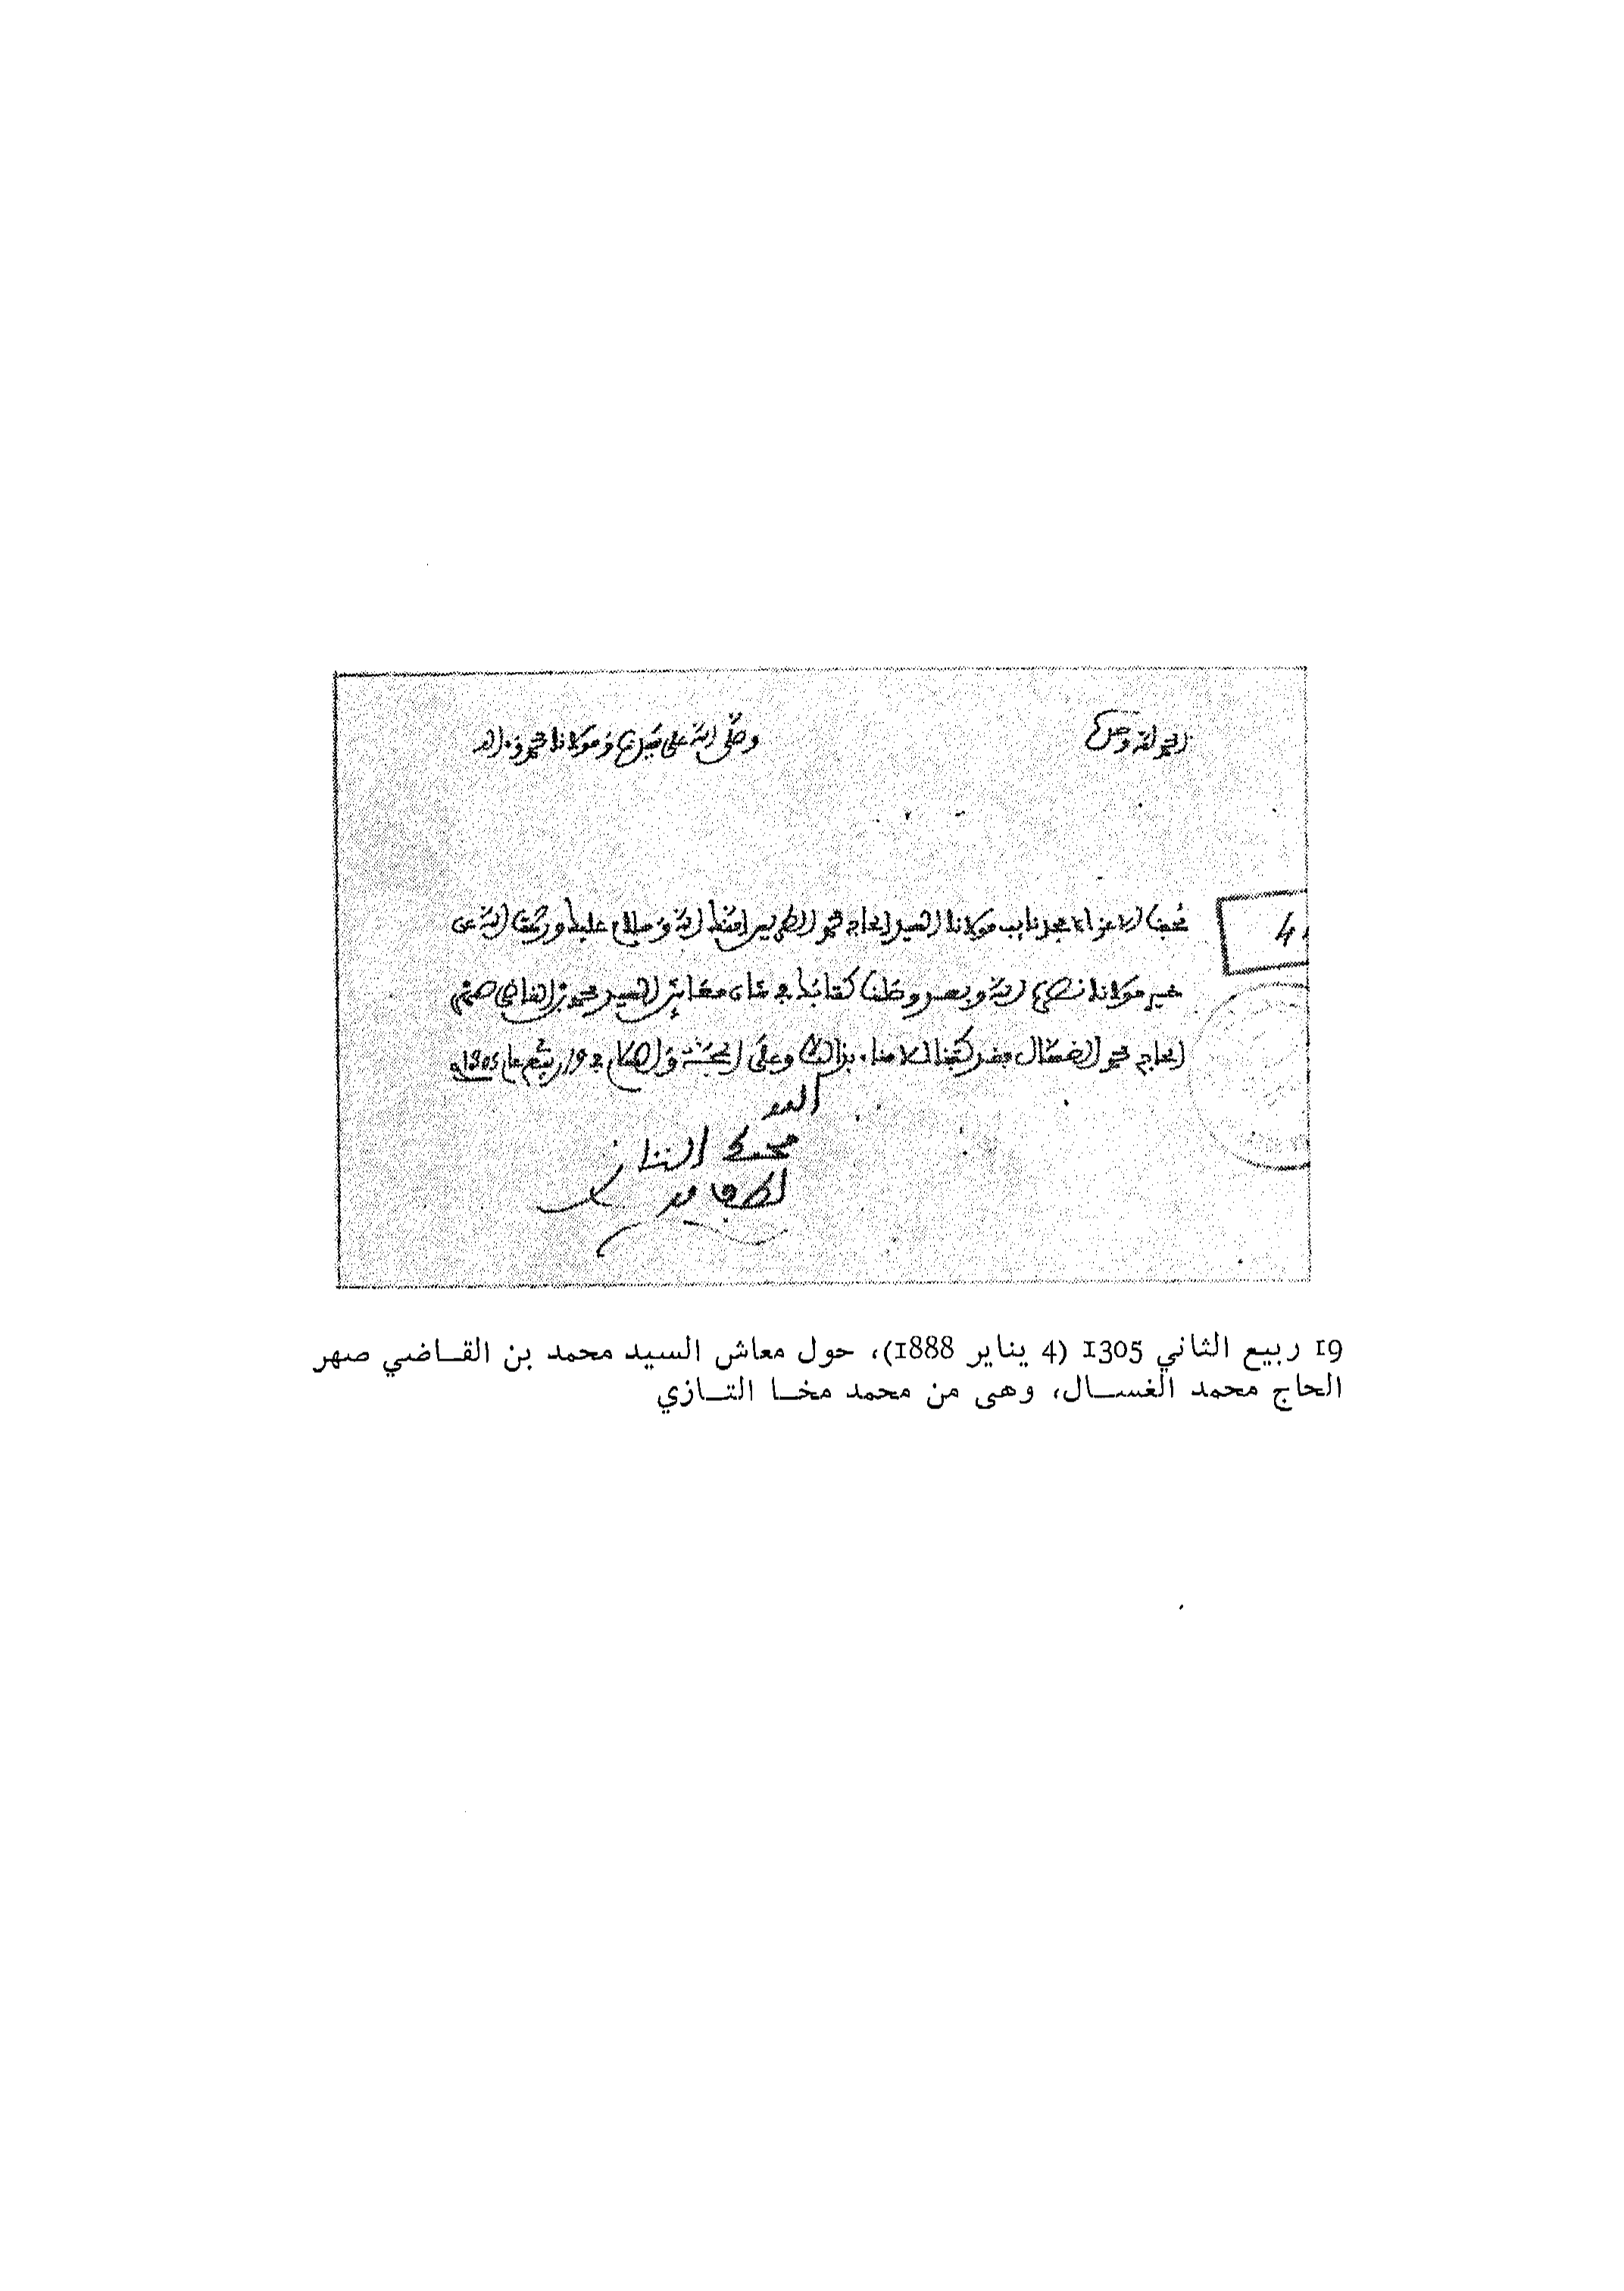 الحمد لله وحده
وصلى الله على سيدنا ومولانا محمد وءاله
محبنا الاعز الامجد نايب مولانا السيد الحاج محمد الطريس امنك الله وسلام عليك ورحمت الله عن
خير مولانا نصره الله وبعد وصلنا كتابك في شان معاش السيد محمد بن القاضي صهر
الحاج محمد الغسال فقد كتبنا للامناء بذالك وعلى المحبة والسلام في 19 ربيع عام 1305
محمد التازي
لطف
4
19 ربيع الثاني 1305 (4 يناير 1888)، حول معاش السيد محمد بن القــاضي صهر
الحاج محمد الغســال، وهى من محمد مخــا التــازي